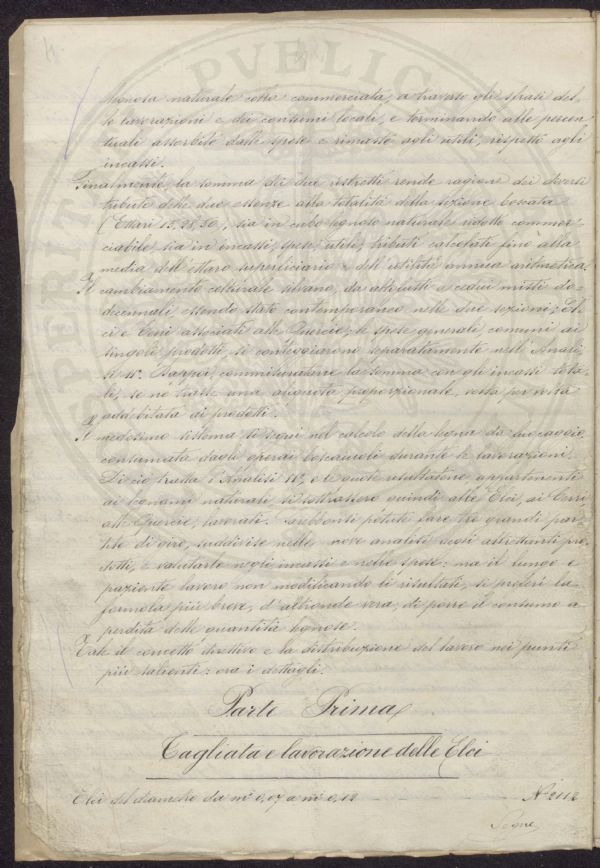 lignosa naturale colla commerciata, a traverso gli sfrasi del-
le lavorazioni e dei consumi locali, e terminando alle percen-
tuali assorbite dalle spese e rimaste agli utili, rispetto agli
incassi.
Finalmente, la somma dei due ristretti rende ragione dei diversi
tributi delle due essenze alla totalità della sezione boscata
(Ettari 15, 28, 50), sia in cubo lignoso naturale ridotto commer-
ciabile, sia in incassi, spese, utili, tributi calcolati fino alla
media dell'ettaro superficiario e dell'entità annua aritmetica.
Il cambiamento colturale silvano, da alti fusti a cedui misti do-
decennali essendo stato contemporaneo nelle due sezioni; El-
ci e Cerri associati alle Quercie; le spese generali comuni ai
singoli prodotti, si conteggiarono separatamente nell'Anali-
si 11ª. Dappoi, commisuratane la somma con gli incassi tota-
li, se ne trasse una aliquota proporzionale, volta per volta
addebitata ai prodotti.
Il medesimo sistema si seguì nel calcolo della legna da bruciaggio,
consumata dagli operai boscaiuoli durante le lavorazioni.
Di ciò tratta l'Analisi 11ª, e le quote risultatone appartenenti
ai legnami naturali, si sottrassero quindi alle Elci, ai Cerri
alle Quercie, lavorati. Sarebbonsi potute fare tre grandi par-
tite di giro, suddivise nelle nove analisi degli altrettanti pro-
dotti, e valutarle negli incassi e nelle spese: ma il lungo e
paziente lavoro non modificando li risultati, si preferì la
formola più breve, d'altronde vera, di porre il consumo a
perdita delle quantità lignose.
Tale il concetto direttivo e la distribuzione del lavoro nei punti
più salienti: ora i dettagli.
Parte Prima
Tagliata e lavorazione delle Elci
Elci del diametro da m. 0,07 a m. 0,12 N° 2112
Segue